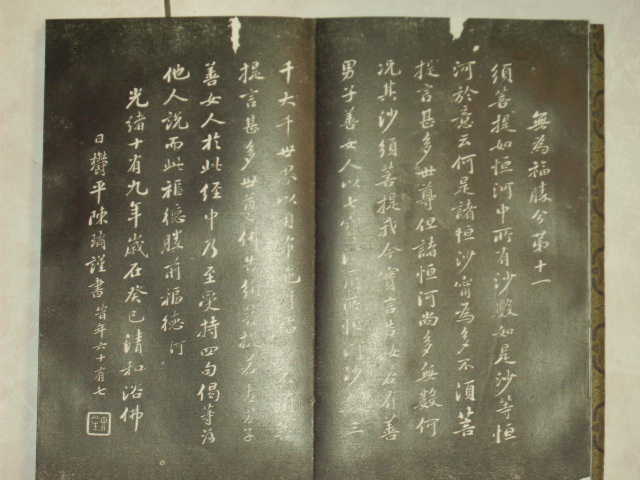 無為福勝分第十一
須菩提如恒河中所有沙數如是沙等恒
河於意云何是諸恒沙寧為多不須菩
提言甚多世尊但諸恒河尚多無數何
況其沙須菩提我今實言告汝若有善
男子善女人以七寶滿爾所恒河沙 三
千大千世界以用布施得福
提言甚多世尊佛告須菩提若善男子
善女人於此經中乃至受持四句偈等為
他人說而此福德勝前福德河
光緒十有九年歲在癸巳清和浴佛
日鬱平陳璚謹書 時年六十有七